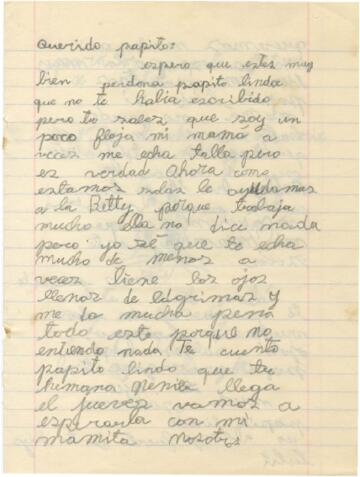 Querido papito:
espero que estes muy
bien perdona papito lindo
que no te habia escribido
pero tu sabes que soy un
poco floja mi mama a
veces me echa talla pero
es verdad ahora como
estamos solas le ayudamos
a la Betty porque trabaja
mucho ella no dice nada
poco yo sé que te echa
mucho de menos a
veces tiene los ojos
llenos de lágrimas y
me da mucha pena
todo esto porque no
entiendo nada Te cuento
papito lindo que tu
humana llega
el jueves vamos a
esperarla con mi
mamita nosotros